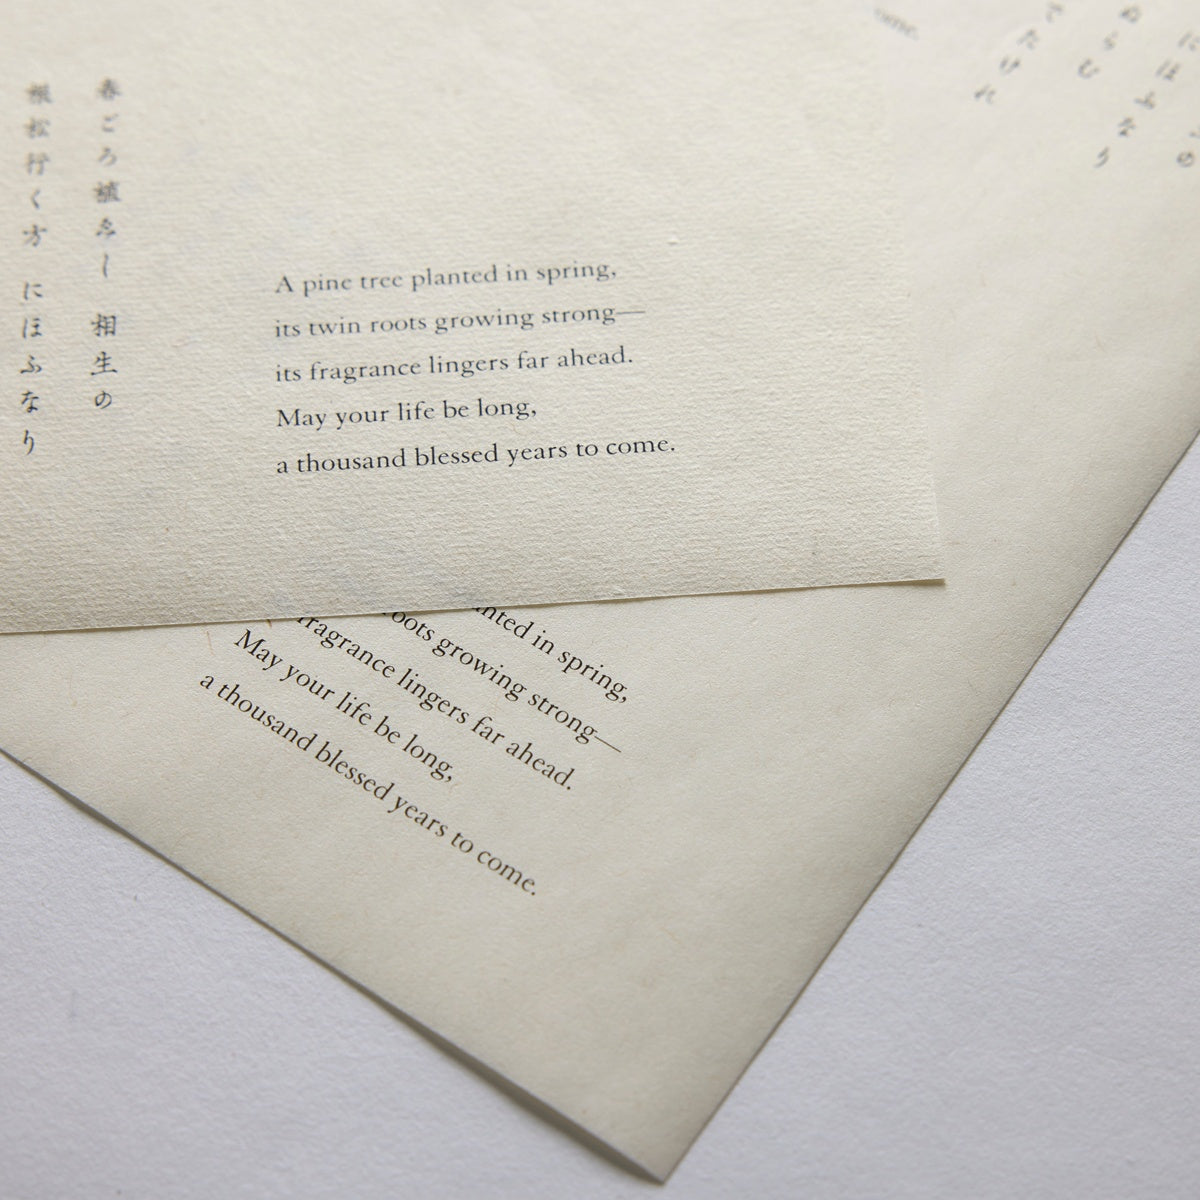 春ごろ植ゑし 相生の
根松行く方 にほふなり
A pine tree planted in spring,
its twin roots growing strong—
its fragrance lingers far ahead.
May your life be long,
a thousand blessed years to come.
nted in spring,
oots growing strong—
fragrance lingers far ahead.
May your life be long,
a thousand blessed years to come.
の
にほふなり
ぬらむ
でたけれ